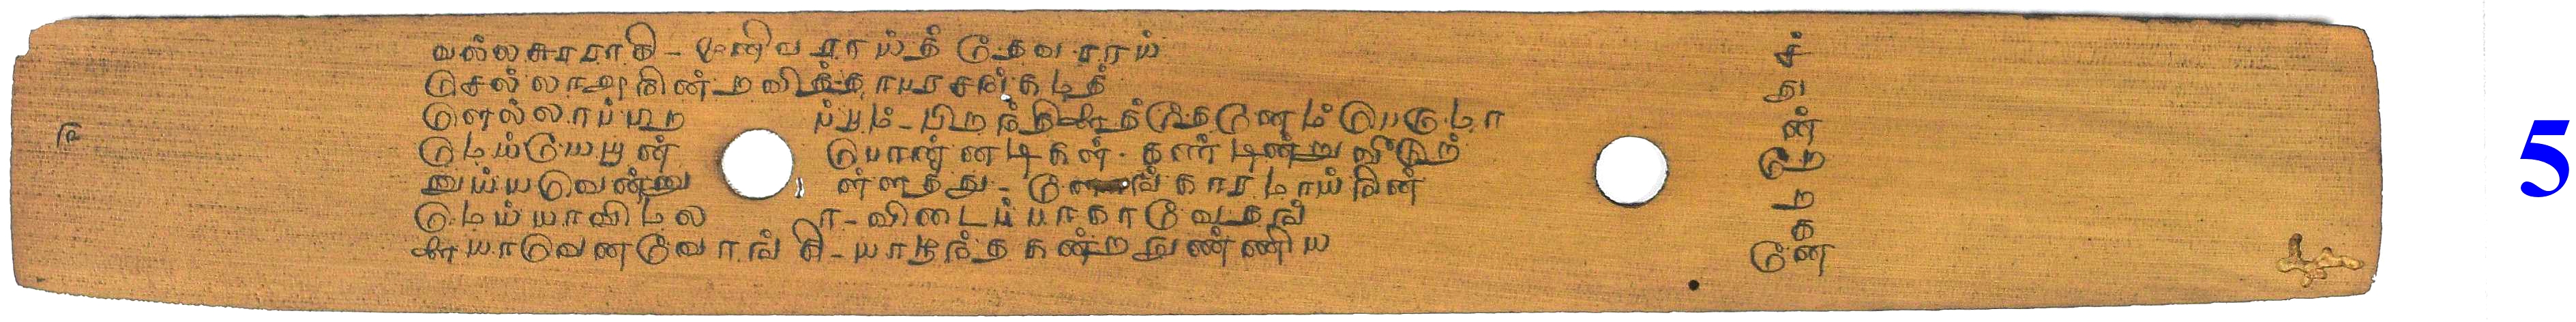 வல்லசுரராகி - முனிவராய்த் தேவராய் ச்
செல்லாஅநின்றவித்தாவரசங்கமத் து
ளெல்லாப்பிற ப்பும் - பிறந்திளைத்தேனெம்பெருமா ன்
௫ மெய்யேயுன் பொன்னடிகள் - கண்டின்றுவீடுற் றே
னுய்யவென்னு ள்ளத்து - ளோங்காரமாய்நின் ற
மெய்யாவிமல ா - விடைப்பாகாவேதங் க
ளையாவெனவோங்கி - யாழ்ந்தகன்றநுண்ணிய னே
5